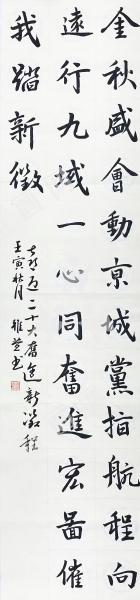 金秋盛會動京城黨指航程向
遠行九域一心同奮進宏圖催
我踏新徵
喜迎二十大奮進新徵程
壬寅秋月 雅芝書